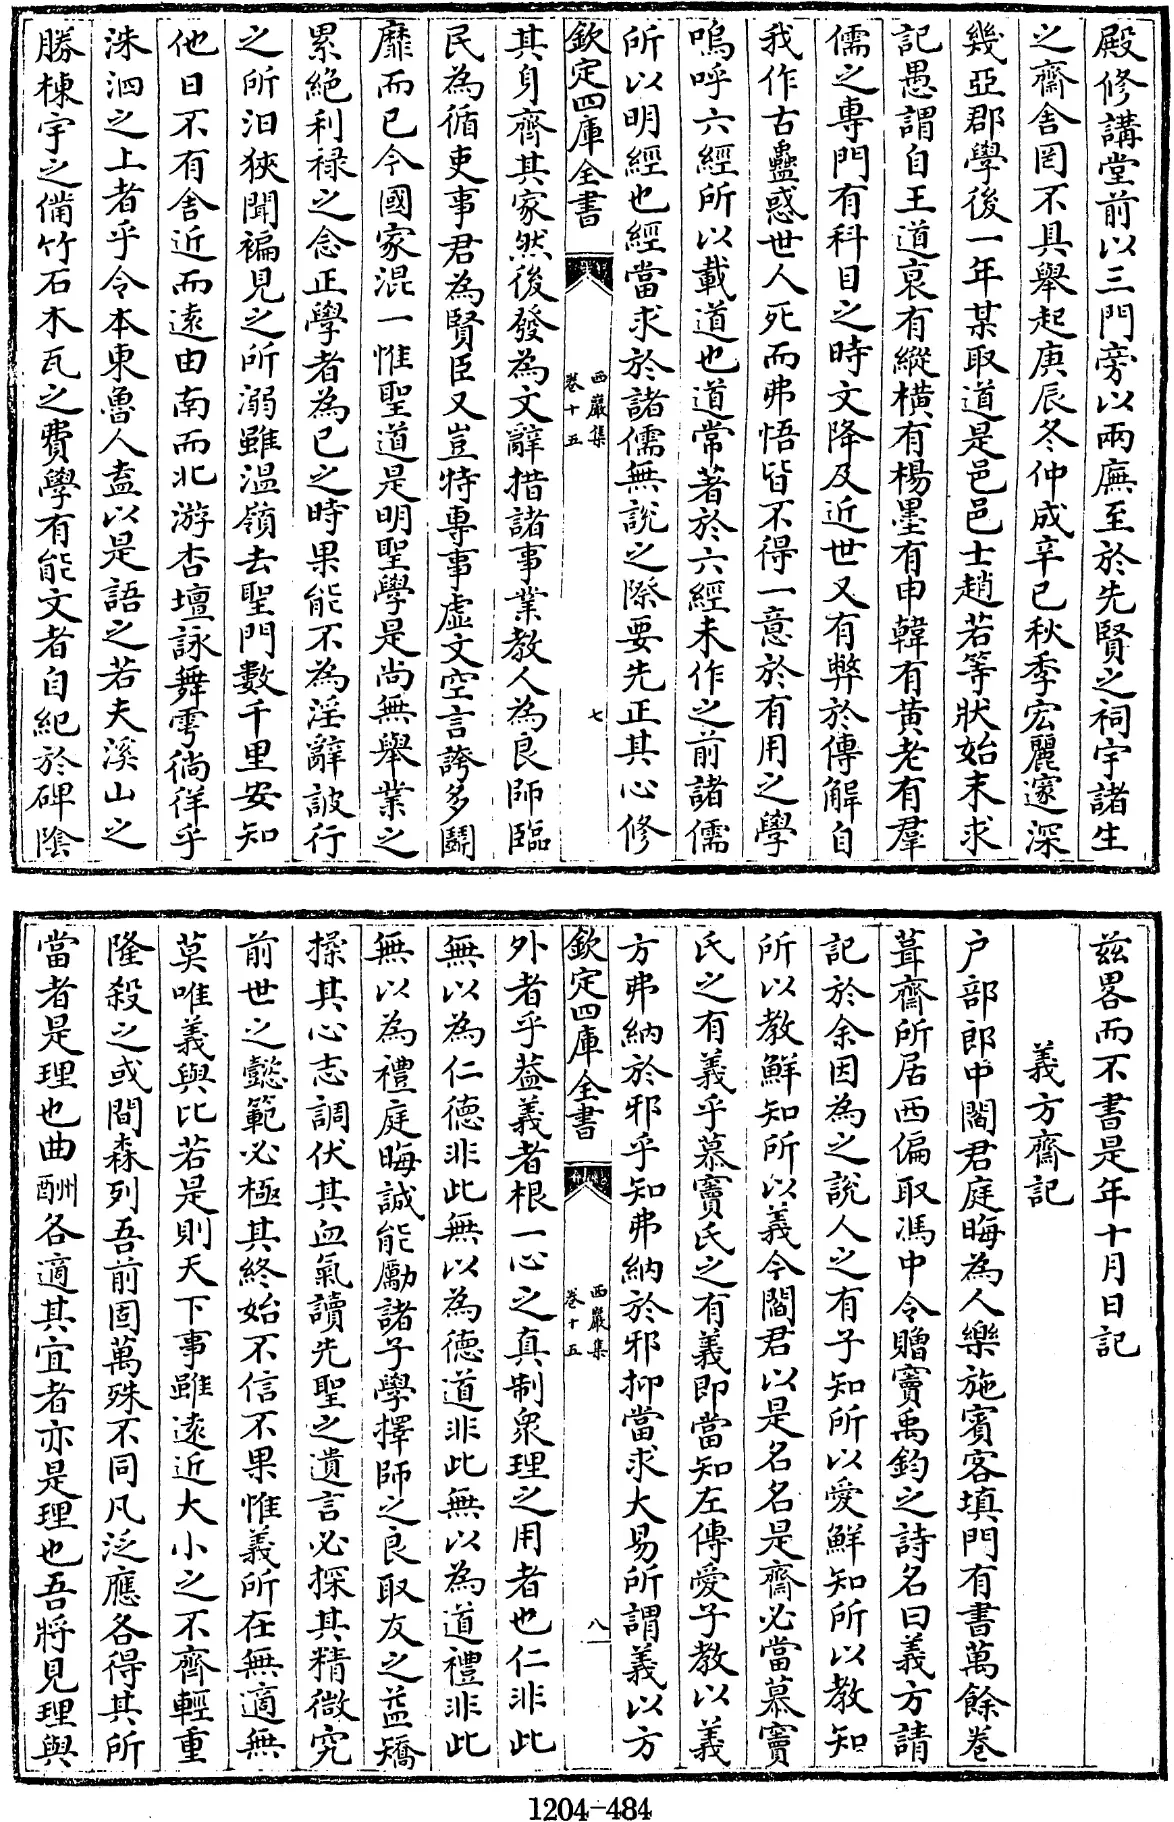 殿修講堂前以三門旁以兩廡至於先賢之祠宇諸生
之齋舍罔不具舉起庚辰冬仲成辛巳秋季宏麗邃深
幾亞郡學後一年某取道是邑邑士趙若等狀始末求
記愚謂自王道衰有縱橫有楊墨有申韓有黄老有羣
儒之専門有科目之時文降及近世又有弊於傳解自
我作古蠱惑世人死而弗悟皆不得一意於有用之學
嗚呼六經所以載道也道常著於六經未作之前諸儒
所以明經也經當求於諸儒無說之際要先正其心修
欽定四庫全書
西巖集
卷十五
七
其身齊其家然後發為文辭措諸事業教人為良師臨
民為循吏事君為賢臣又豈特專事虚文空言誇多鬭
靡而已今國家混一惟聖道是明聖學是尚無舉業之
累絶利禄之念正學者為已之時果能不為淫辭詖行
之所汨狹聞褊見之所溺雖温嶺去聖門數千里安知
他日不有舍近而遠由南而北游杏壇詠舞雩徜徉乎
洙泗之上者乎令本東魯人盍以是語之若夫溪山之
勝棟宇之備竹石木瓦之費學有能文者自紀於碑隂
兹畧而不書是年十月日記
義方齋記
户部郎中閻君庭晦為人樂施賓客填門有書萬餘卷
葺齋所居西偏取馮中令贈竇禹鈞之詩名曰義方請
記於余因為之說人之有子知所以愛鮮知所以教知
所以教鮮知所以義今閻君以是名名是齋必當慕竇
氏之有義乎慕竇氏之有義即當知左傳愛子教以義
方弗納於邪乎知弗納於邪抑當求大易所謂義以方
欽定四庫全書
西巖集
卷十五
八
外者乎葢義者根一心之真制衆理之用者也仁非此
無以為仁德非此無以為德道非此無以為道禮非此
無以為禮庭晦誠能勵諸子學擇師之良取友之益矯
揉其心志調伏其血氣讀先聖之遺言必探其精微究
前世之懿範必極其終始不信不果惟義所在無適無
莫唯義與比若是則天下事雖遠近大小之不齊輕重
隆殺之或間森列吾前固萬殊不同凡泛應各得其所
當者是理也曲酬各適其宜者亦是理也吾將見理與
1204-484